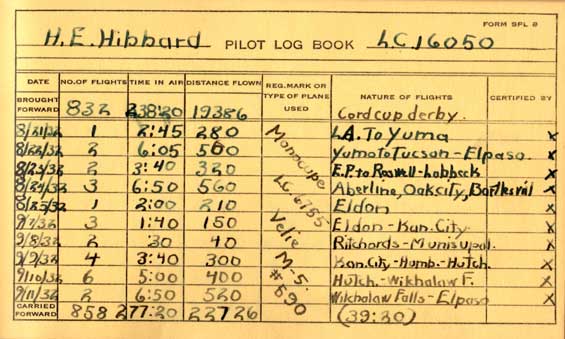 FORM SPL 8
H.E. Hibbard PILOT LOG BOOK LC 16050
DATE NO. OF FLIGHTS TIME IN AIR DISTANCE FLOWN REG. MARK OR TYPE OF PLANE USED NATURE OF FLIGHTS CERTIFIED BY
BROUGHT FORWARD 832 238:20 19386 Cord cup derby.
8/21/32 1 2:45 280 L.A. To Yuma x
8/22/32 2 6:05 500 Yuma to Tucson - Elpaso. x
8/23/32 2 3:40 320 E.P. to Roswell - Lobbeck x
8/24/32 3 6:50 560 Aberline, Oakcity, Bartlesvil x
8/25/32 1 2:00 210 Eldon x
9/7/32 3 1:40 150 Eldon - Kan. City x
9/8/32 2 30 40 Richards - Munisupal. x
9/9/32 4 3:40 300 Kan. City - Humb. - Hutch. x
9/10/32 6 5:00 400 Hutch. - Wikhalaw F. x
9/11/32 2 6:50 520 Wikhalaw Falls - Elpaso x
CARRIED FORWARD 858 277:20 22726 (39:20)
Monocupe
LC 6755
Velie
M-5.
#590